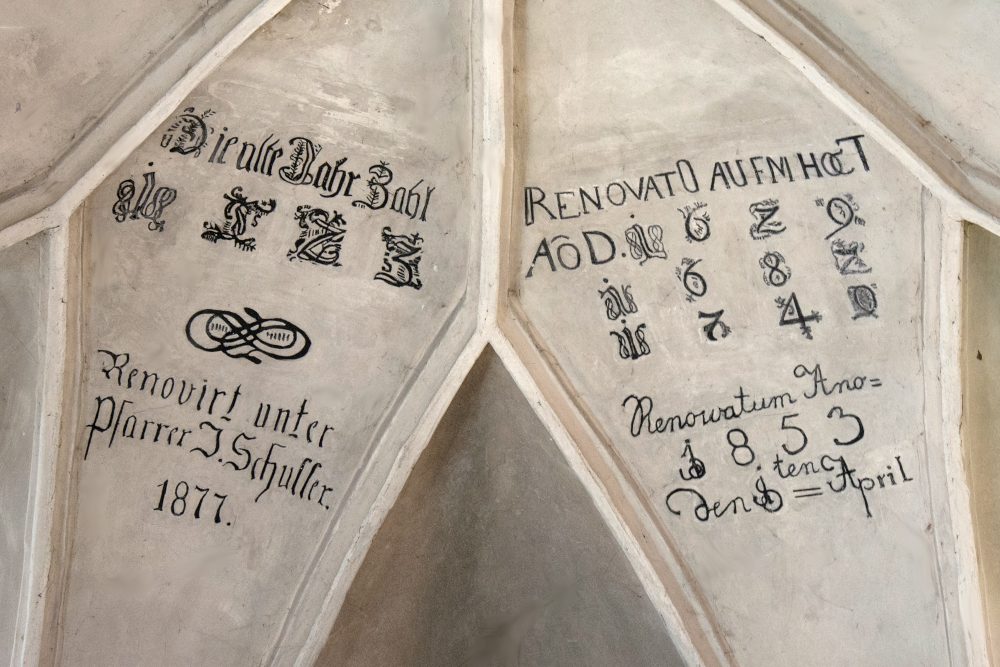 Die alte Jahr Zahl
Renovirt unter
Pfarrer J. Schuller.
1877.
RENOVATO AUF M HOCT
AÔD. 1 6 2 9
1 6 8 2
1 7 4 0
Renowatum Ano=
1 8 5 3
Den 1.ten = April